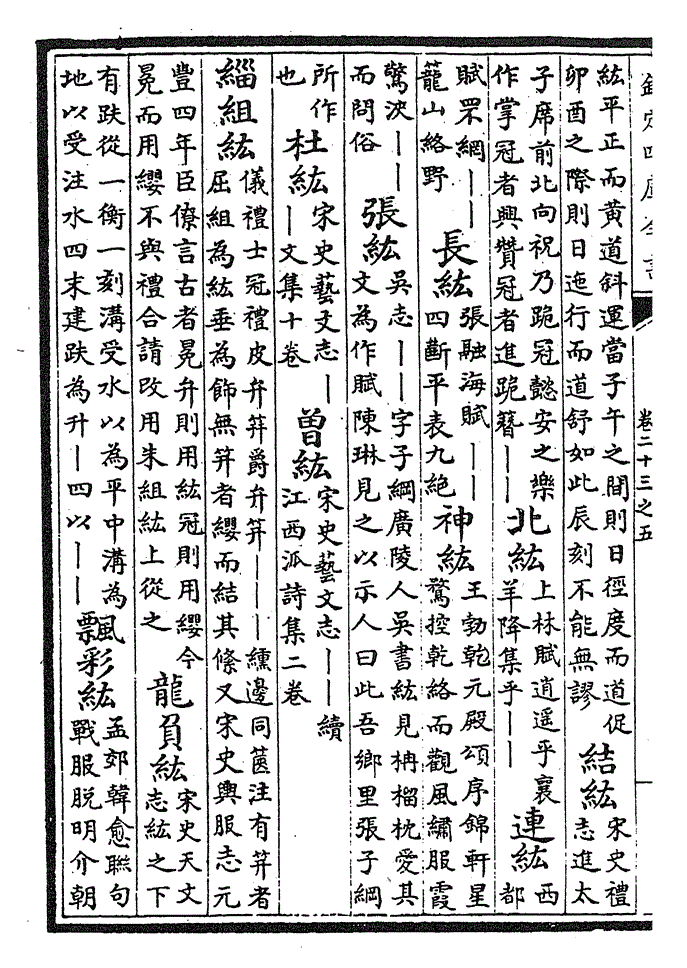 欽定四庫全書
卷二十三之五
紘平正而黄道斜運當子午之間則日徑度而道促
卯酉之際則日迤行而道舒如此辰刻不能無謬
結紘
宋史禮
志進太
子席前北向祝乃跪冠懿安之樂
作掌冠者興贊冠者進跪簪——
北紘
上林賦逍遥乎襄
羊降集乎——
連紘
西
都
賦罘網——
籠山絡野
長紘
張融海賦——
四斷平表九絶
神紘
王勃乾元殿頌序錦軒星
鶩控乾絡而觀風繡服霞
驚泱——
而問俗
張紘
吳志——字子綱廣陵人吳書紘見柟榴枕愛其
文為作賦陳琳見之以示人曰此吾鄉里張子綱
所作
也
杜紘
宋史藝文志—
—文集十卷
曽紘
宋史藝文志——續
江西派詩集二卷
緇組紘
儀禮士冠禮皮弁笄爵弁笄———纁邊同篋注有笄者
屈組為紘垂為飾無笄者纓而結其絛又宋史輿服志元
豐四年臣僚言古者冕弁則用紘冠則用纓今
冕而用纓不與禮合請改用朱組紘上從之
龍負紘
宋史天文
志紘之下
有趺從一衡一刻溝受水以為平中溝為
地以受注水四末建趺為升—四以——
飄彩紘
孟郊韓愈聯句
戰服脱明介朝